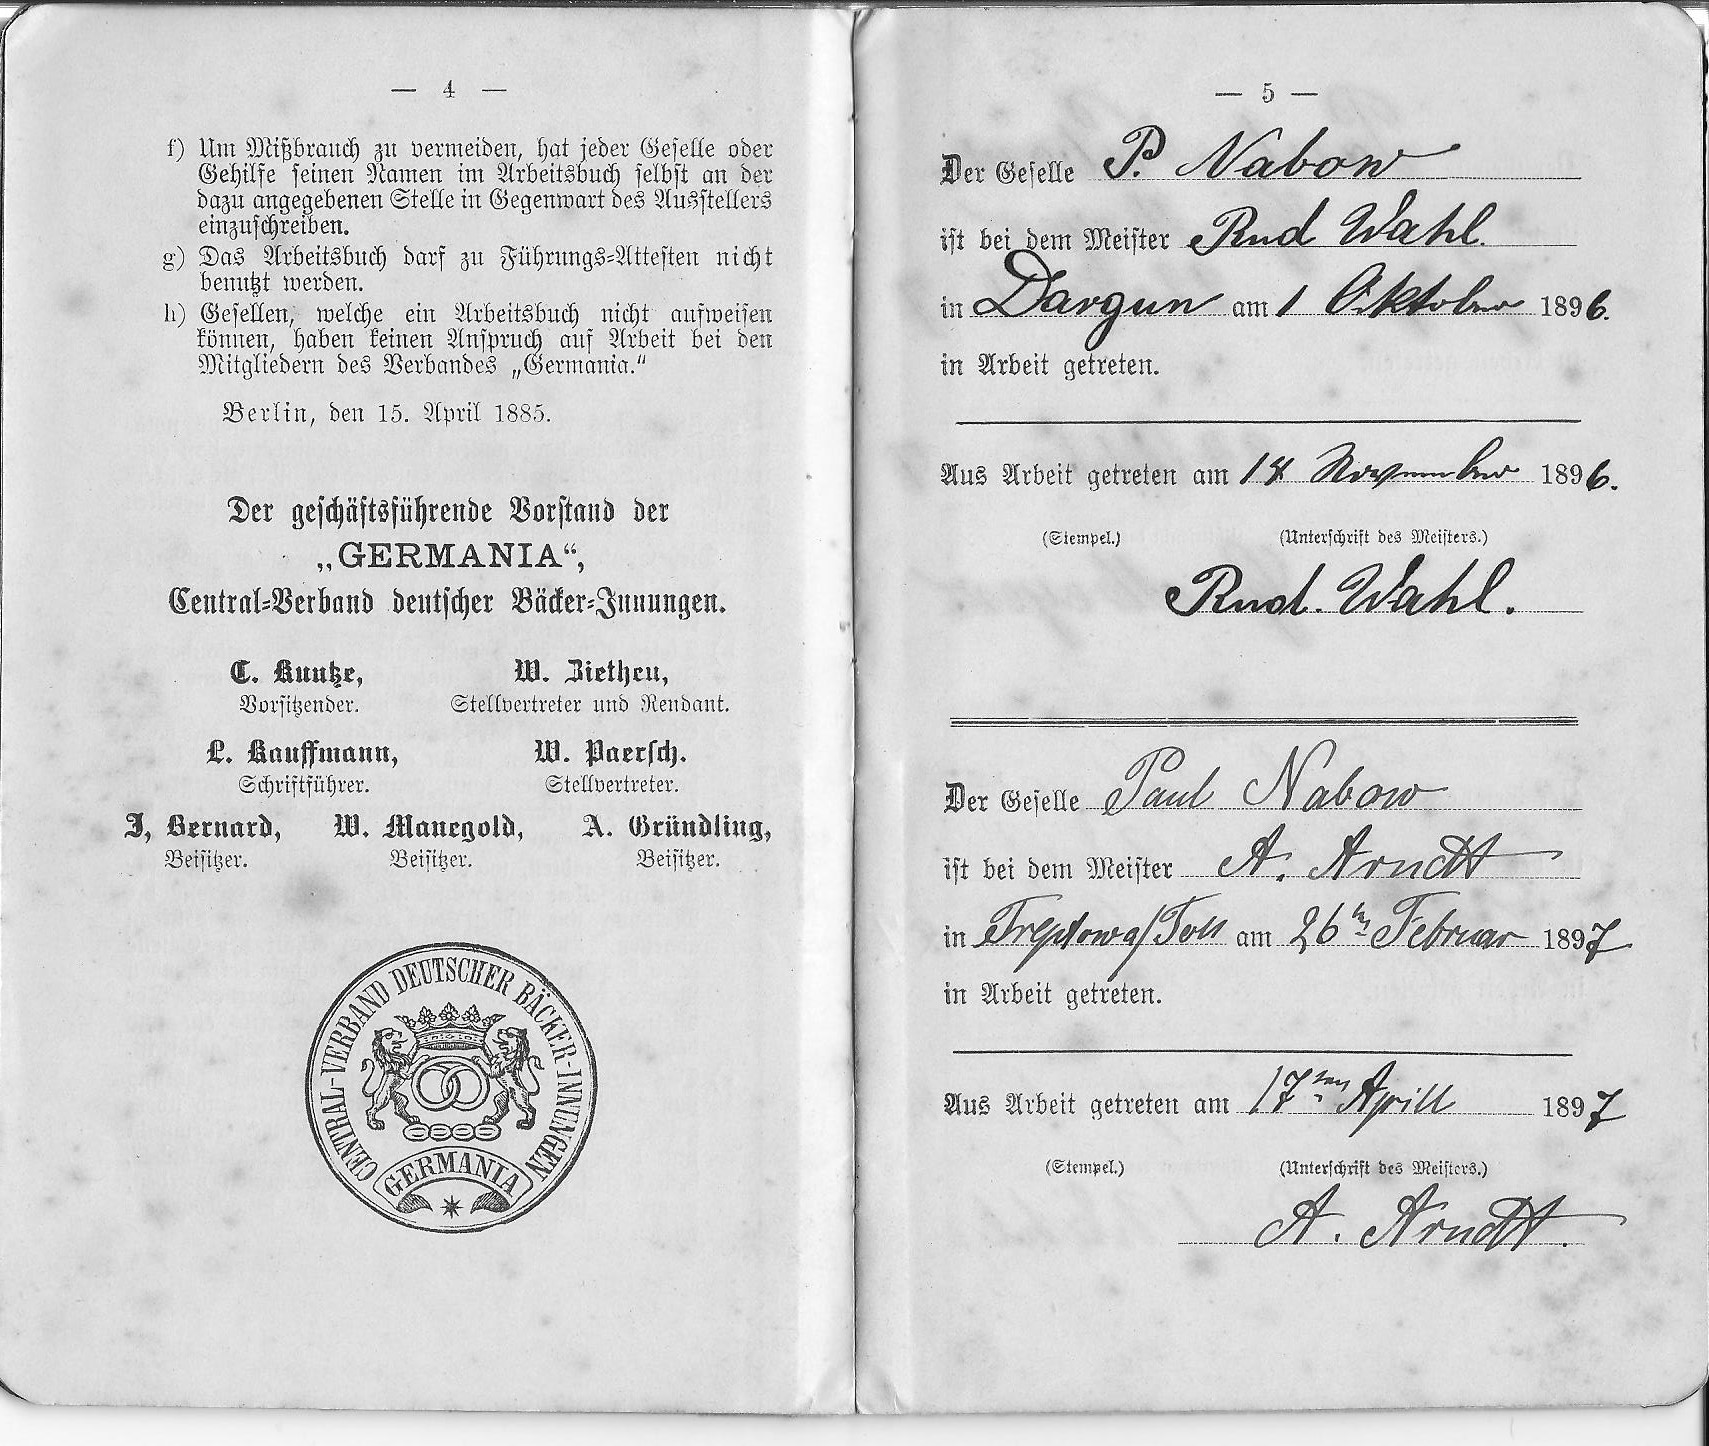 — 4 —
f) Um Mißbrauch zu vermeiden, hat jeder Geselle oder
Gehilfe seinen Namen im Arbeitsbuch selbst an der
dazu angegebenen Stelle in Gegenwart des Ausstellers
einzuschreiben.
g) Das Arbeitsbuch darf zu Führungs-Attesten nicht
benutzt werden.
h) Gesellen, welche ein Arbeitsbuch nicht aufweisen
können, haben keinen Anspruch auf Arbeit bei den
Mitgliedern des Verbandes „Germania.“
Berlin, den 15. April 1885.
Der geschäftsführende Vorstand der
„GERMANIA“,
Central-Verband deutscher Bäcker-Innungen.
C. Kuntze, W. Ziethen,
Vorsitzender. Stellvertreter und Rendant.
L. Kauffmann, W. Paersch.
Schriftführer. Stellvertreter.
J, Bernard, W. Manegold, A. Gründling,
Beisitzer. Beisitzer. Beisitzer.
CENTRAL-VERBAND DEUTSCHER BÄCKER-INNUNGEN
GERMANIA
— 5 —
Der Geselle P. Nabow
ist bei dem Meister Rud Wahl.
in Dargun am 1 Oktober 1896.
in Arbeit getreten.
Aus Arbeit getreten am November 1896.
(Stempel.) (Unterschrift des Meisters.)
Rud. Wahl.
Der Geselle Paul Nabow
ist bei dem Meister A. Arndt
in Treptow a/Toll am 26ten Februar 1897
in Arbeit getreten.
Aus Arbeit getreten am 17ten Aprill 1897
(Stempel.) (Unterschrift des Meisters.)
A. Arndt.